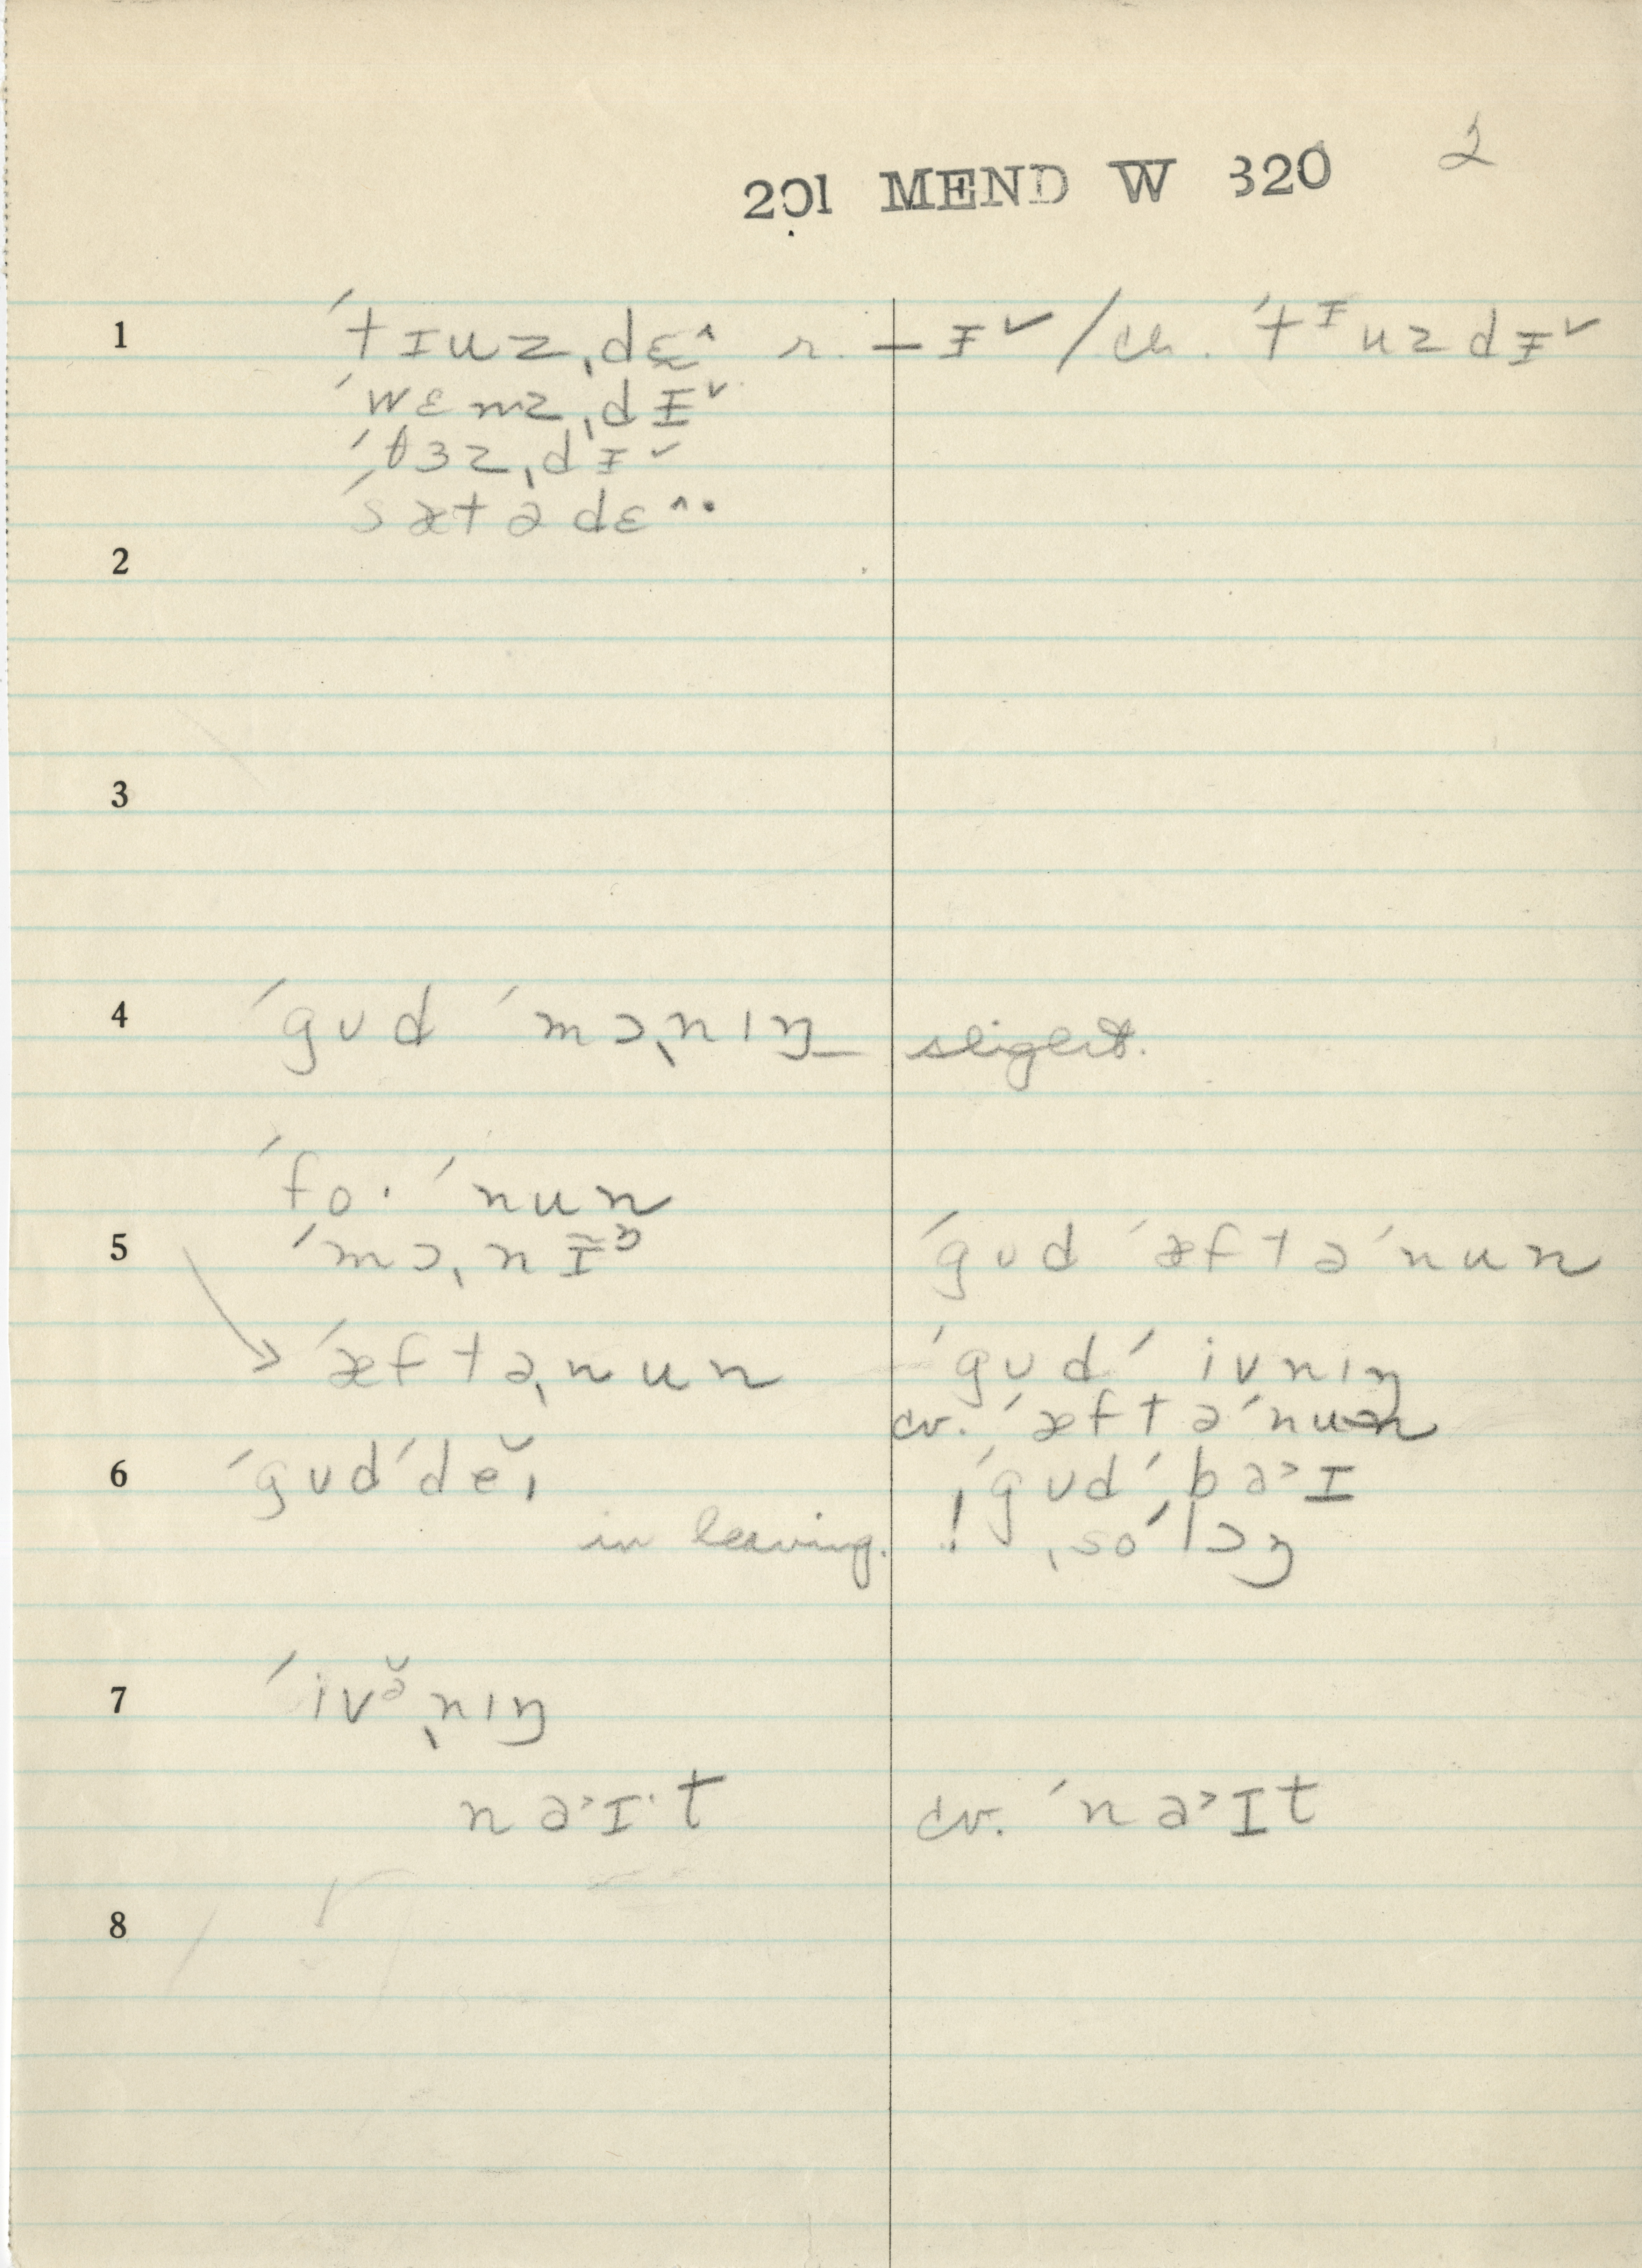 201 MEND W 320 2
1 ˈtɪuzˌdɛ^ r. – ɪˇ / ch. ˈtᶦuzdɪˇ
ˈwɛnzˌdɪˇ
ˈθɜzˌdɪˇ
ˈsætədɛ^·
2
3
4 ˈgʊd ˈmɔˌnɪŋ – slight.
ˈfo· ˈnun
5 ˈmɔˌnɪ̃ᵑ ˈgʊd ˈæftəˈnun
→ ˈæftəˌnun ˈgʊd ˈivnɪŋ
cv. ˈæftəˈnun
6 ˈgʊdˈdĕɪ ! ˈgʊdˈbə˃ɪ
in leaving. ! ˌsoˈlɔŋ
7 ˈivə̆ˌnɪŋ
nə˃ɪ·t cv. ˈnə˃ɪt
8